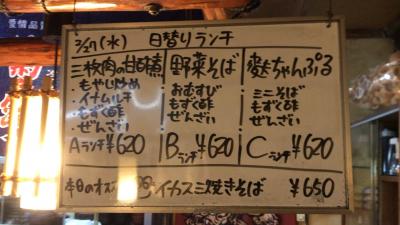 愛情品質
2/27(水) 日替りランチ
三枚肉の甘酢煮
もやし炒め
イナムルチ
もずく酢
ぜんざい
Aランチ ¥620
野菜そば
おむすび
もずく酢
ぜんざい
Bランチ ¥620
麩ちゃんぷる
ミニそば
もずく酢
ぜんざい
Cランチ ¥620
本日のオススメ イカスミ焼きそば ¥650